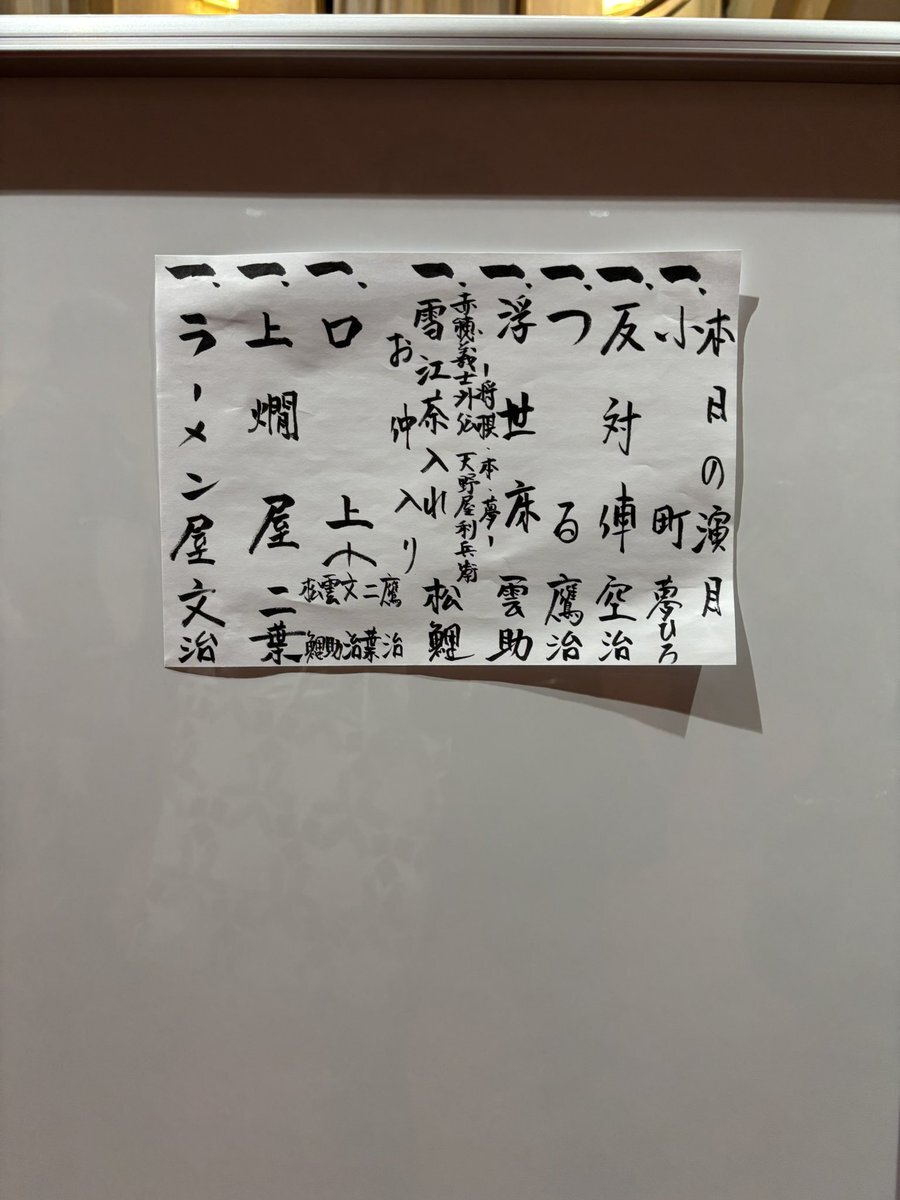 本日の演目
一、小町 夢ひろ
一、反対俥 空治
一、つる 鷹治
一、浮世床 雲助
ー将棋・本・夢ー
赤穂義士外伝 天野屋利兵衛
一、雪江茶入れ 松鯉
お仲入り
一、口上
鷹治
二葉
文治
雲助
松鯉
一、上燗屋 二葉
一、ラーメン屋 文治